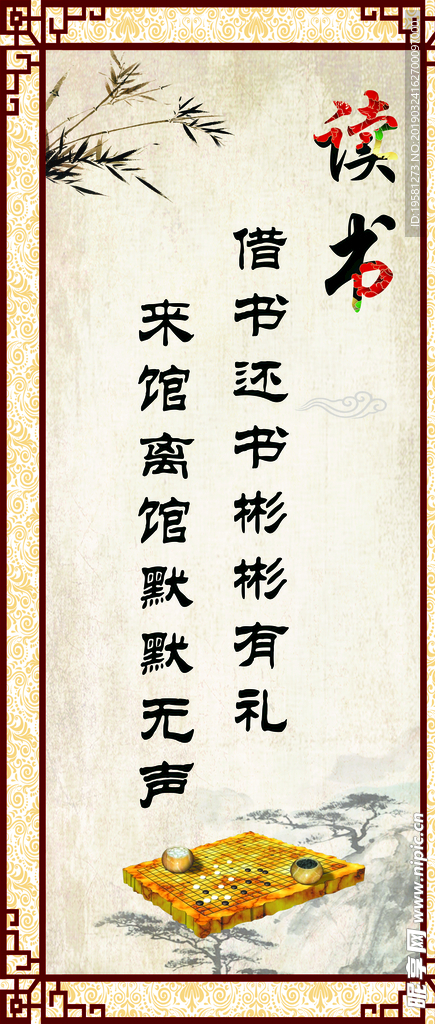 读书
借书还书彬彬有礼
来馆离馆默默无声
ID:19581273 NO:20190324162700097000
昵享网 www.nipic.cn